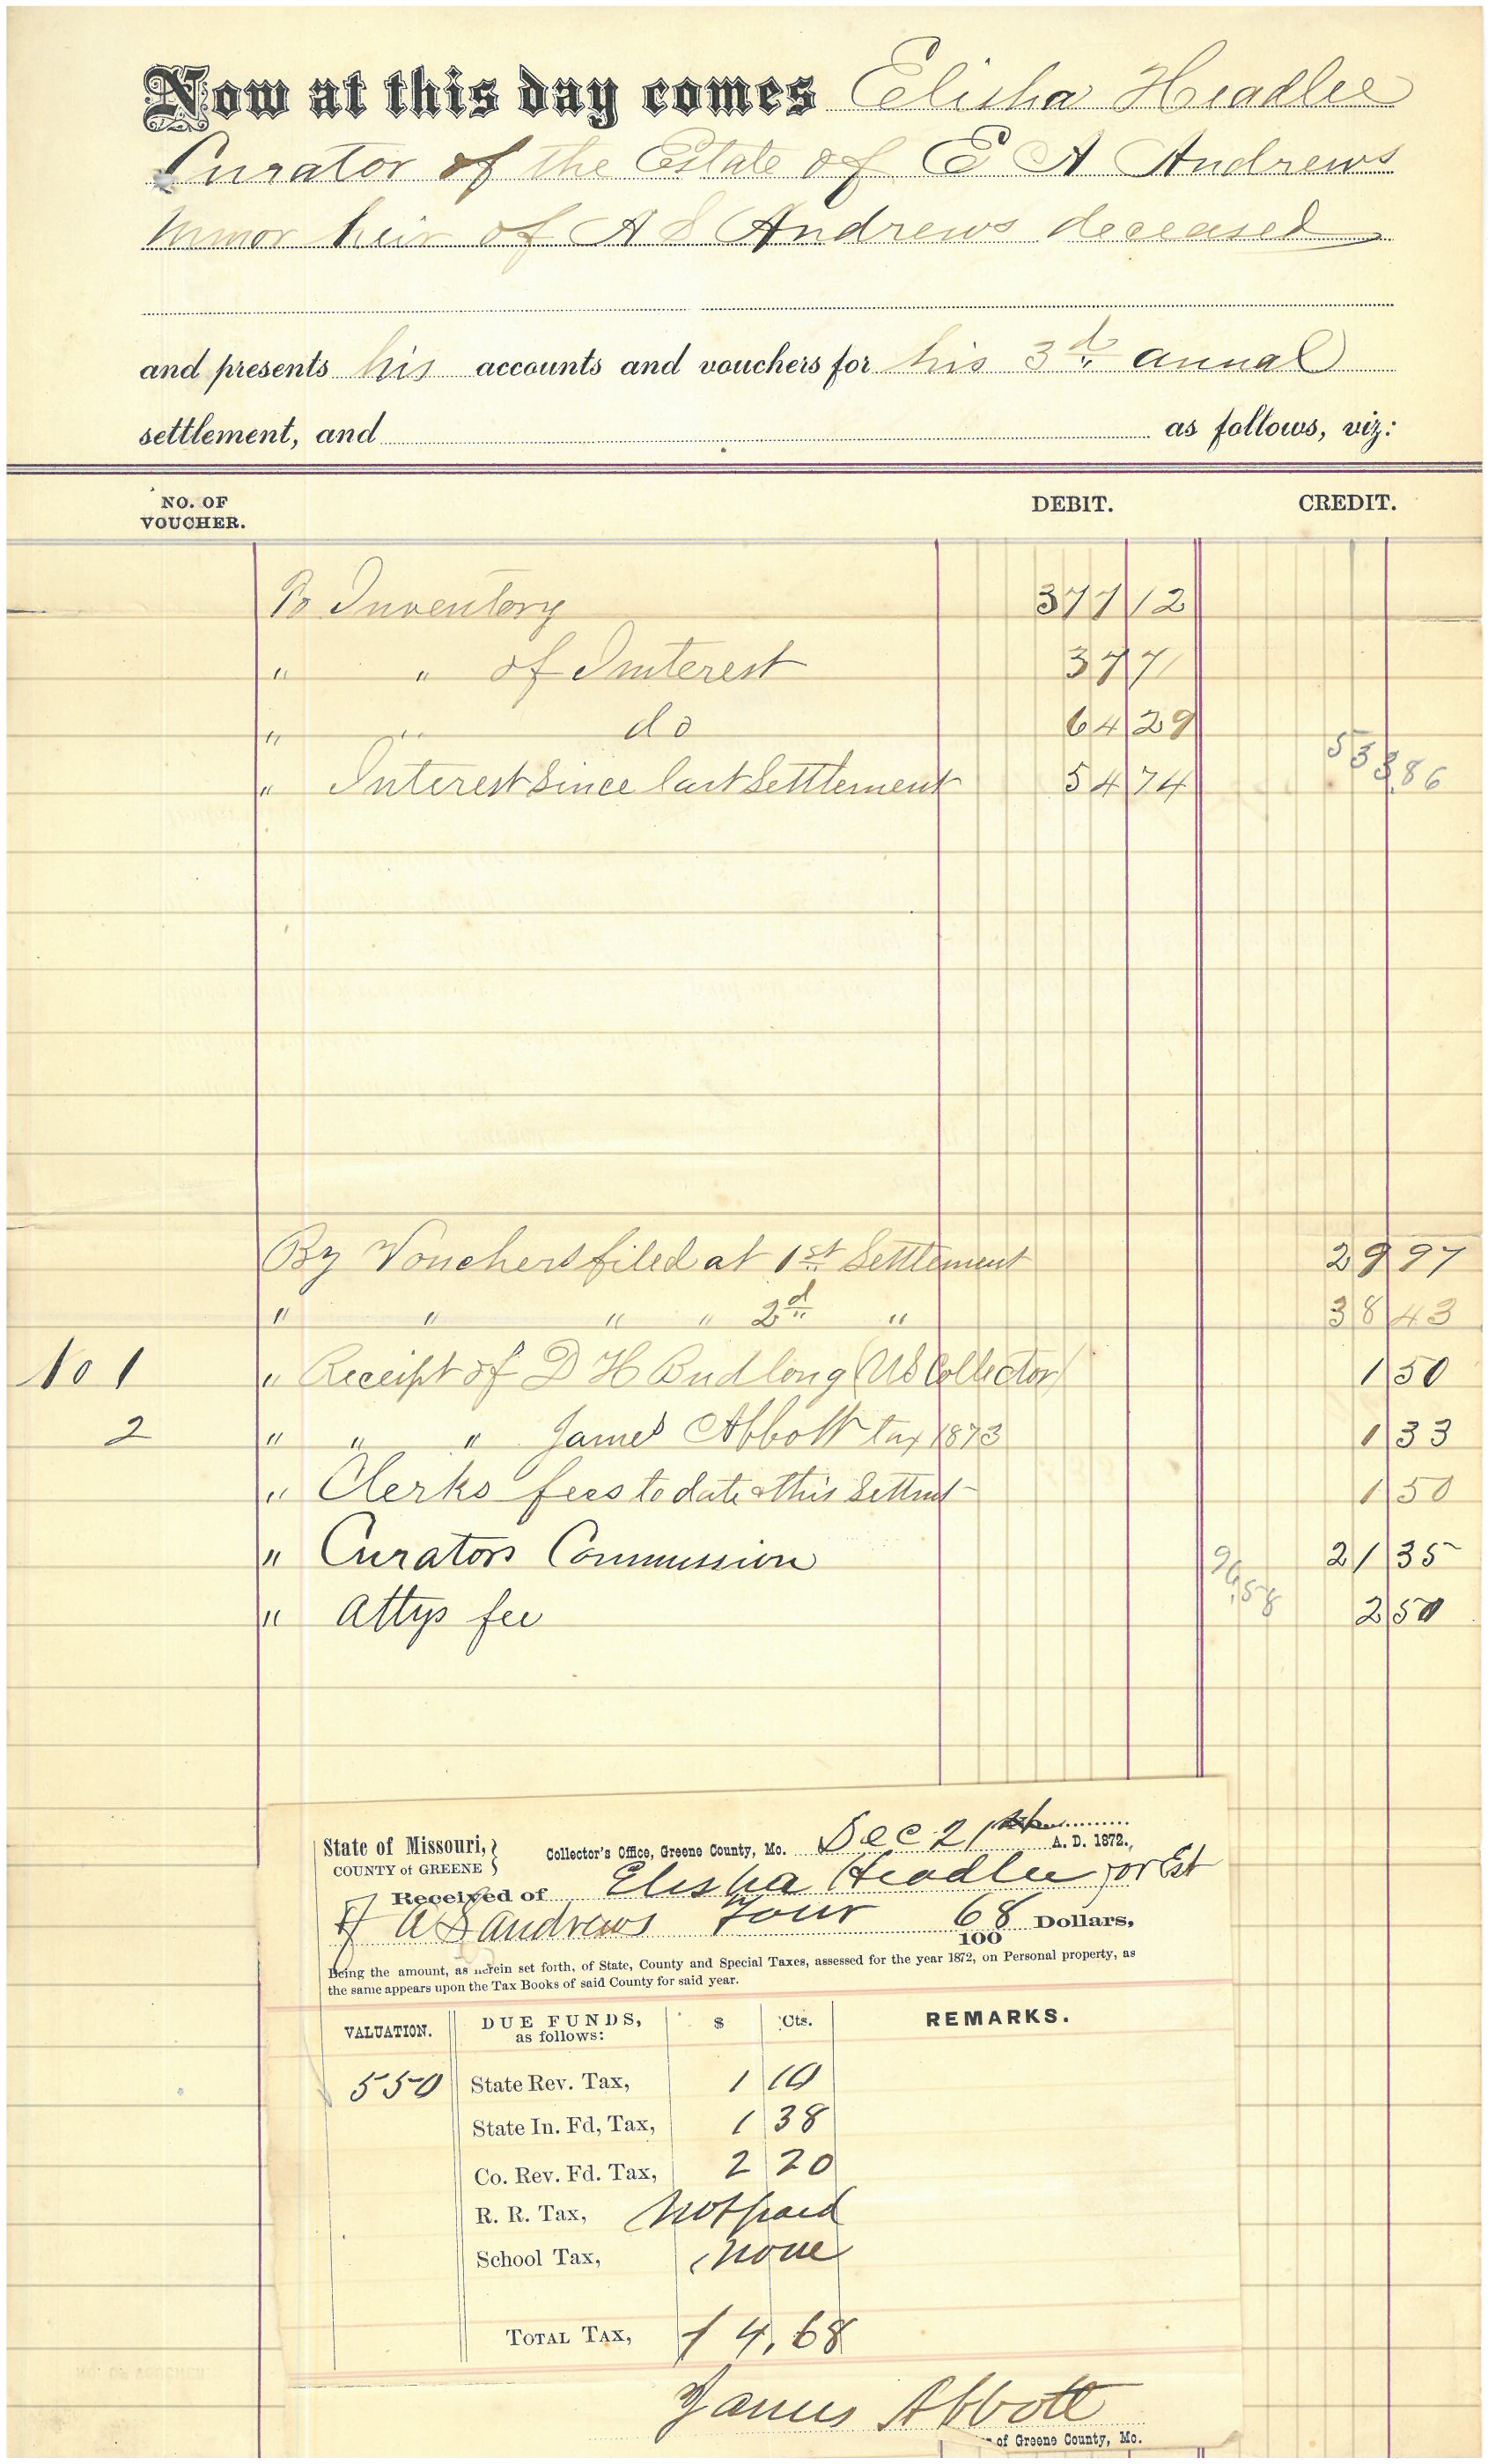 Now at this day comes Elisha Headlee
Curator of the Estate of E A Andrews
minor heir of A S Andrews deceased
and presents his accounts and vouchers for his 3d annual
settlement, and as follows, viz:
NO. OF VOUCHER. DEBIT. CREDIT.
To Inventory 377 12
" " of Interest 37 71
" " do 64 29
" Interest Since last Settlement 54 74
533,86
By Vouchers filed at 1st Settlement 29 97
" " " " 2d " 38 43
No 1 " Receipt of D H Budlong (US Collector) 1 50
2 " " " James Abbott tax 1873 1 33
" Clerks fees to date & this Settmt 1 50
" Curators Commission 21 35
96,58
" Attys fee 2 50
State of Missouri,
COUNTY of GREENE
Collector's Office, Greene County, Mo. Dec 21 A. D. 1872.,
Received of Elisha Headlee for Est
of A S Andrews Four 68/100 Dollars,
Being the amount, as herein set forth, of State, County and Special Taxes, assessed for the year 1872, on Personal property, as
the same appears upon the Tax Books of said County for said year.
VALUATION. DUE FUNDS, as follows: $ Cts. REMARKS.
550 State Rev. Tax, 1 10
State In. Fd, Tax, 1 38
Co. Rev. Fd. Tax, 2 20
R. R. Tax, Not paid
School Tax, None
TOTAL TAX, 4,68
James Abbott
of Greene County, Mo.